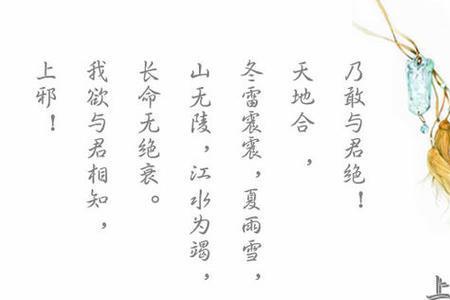 上邪！
我欲与君相知，
长命无绝衰。
山无陵，江水为竭，
冬雷震震，夏雨雪，
天地合，
乃敢与君绝！
上